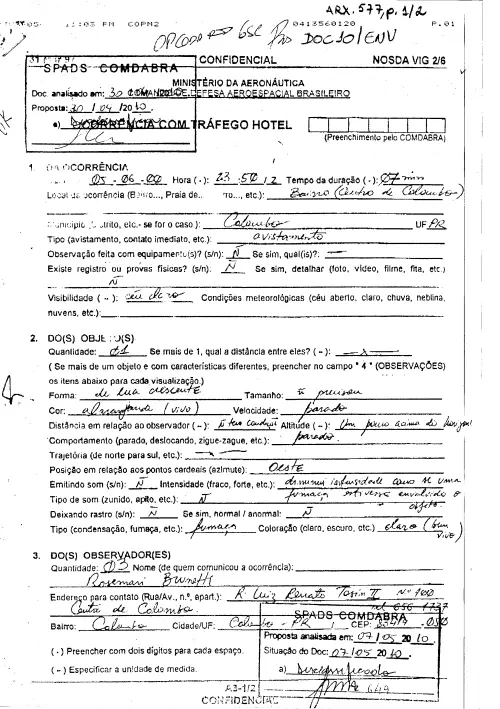 ARX. 577, p. 1/2
11:03 PM COPM2 0413560120 P.01
DOC10/ENV
CONFIDENCIAL NOSDA VIG 2/6
SPADS COMDABRA
MINISTÉRIO DA AERONÁUTICA
Doc. analisado em: 30 COMANDO DE DEFESA AEROESPACIAL BRASILEIRO
Proposta: 30 / 04 / 2010
a) OCORRÊNCIA COM TRÁFEGO HOTEL
(Preenchimento pelo COMDABRA)
1. DA OCORRÊNCIA
05-06-00 Hora (-): 23:50 / 2 Tempo da duração (-): 07 min
Local da ocorrência (Bairro..., Praia de... ro..., etc.): Bairro (Centro de Colombo)
Município, distrito, etc.- se for o caso): Colombo UF PR
Tipo (avistamento, contato imediato, etc.): avistamento
Observação feita com equipamento(s)? (s/n): N Se sim, qual(is)?: —
Existe registro ou provas físicas? (s/n): N Se sim, detalhar (foto, vídeo, filme, fita, etc.)
N
Visibilidade (-): céu claro Condições meteorológicas (céu aberto, claro, chuva, neblina,
nuvens, etc.):
2. DO(S) OBJETO(S)
Quantidade: 01 Se mais de 1, qual a distância entre eles? (-):
( Se mais de um objeto e com características diferentes, preencher no campo "4" (OBSERVAÇÕES)
os itens abaixo para cada visualização.)
Forma: de lua crescente Tamanho: ñ precisou
Cor: (vivo) Velocidade: parado
Distância em relação ao observador (-): Altitude (-): Um pouco acima do
Comportamento (parado, deslocando, zigue-zague, etc.): parado.
Trajetória (de norte para sul, etc.):
Posição em relação aos pontos cardeais (azimute): Oeste
Emitindo som (s/n): N Intensidade (fraco, forte, etc.): diminui intensidade como se uma
Tipo de som (zunido, apito, etc.): N fumaça estivesse envolvido o
objeto
Deixando rastro (s/n): N Se sim, normal / anormal: N
Tipo (condensação, fumaça, etc.): fumaça Coloração (claro, escuro, etc.) claro (bem
vivo)
3. DO(S) OBSERVADOR(ES)
Quantidade: 03 Nome (de quem comunicou a ocorrência):
Rosemari Brunetti
Endereço para contato (Rua/Av., n°, apart.): R. Luiz Renato Nº 100
de Colombo. tel 656
Bairro: Colombo Cidade/UF: Colombo - PR CEP:
SPADS COMDABRA
Proposta analisada em: 07/05 2010
( - ) Preencher com dois dígitos para cada espaço. Situação do Doc: 07/05 2010
( – ) Especificar a unidade de medida. a) Desclassificado
A3-1/2
CONFIDENCIAL